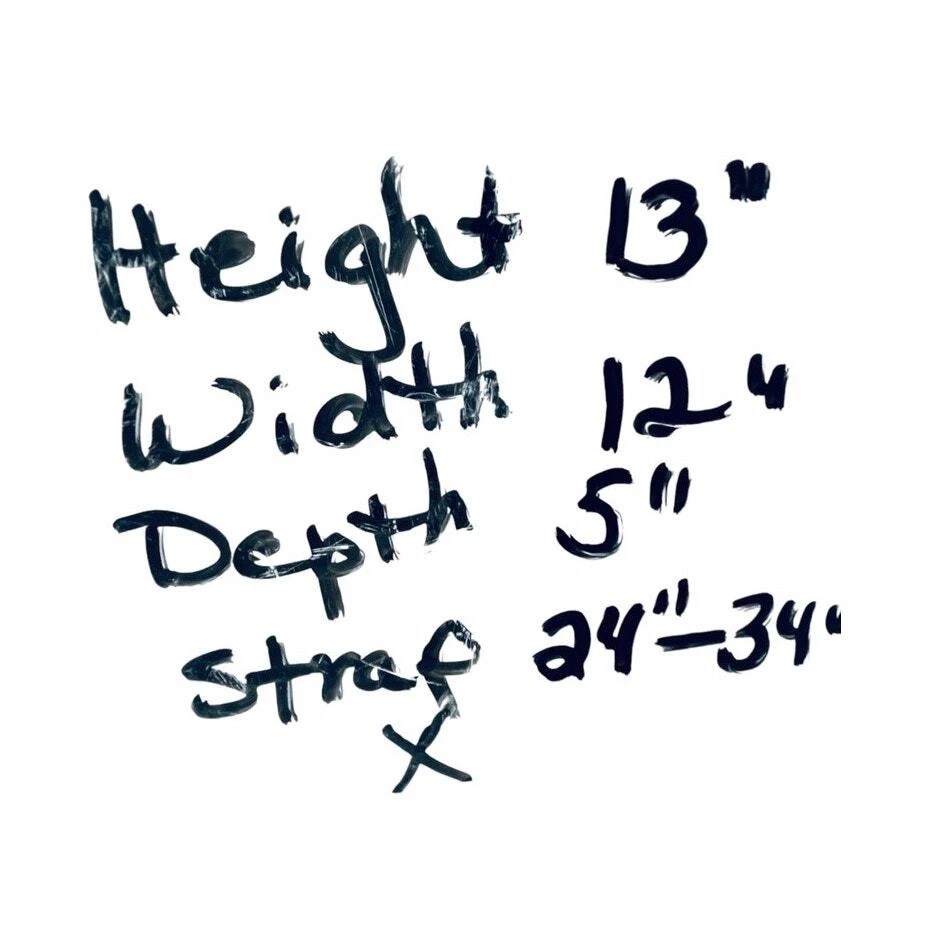 Height 13"
Width 12"
Depth 5"
Strap 24"-34"
X